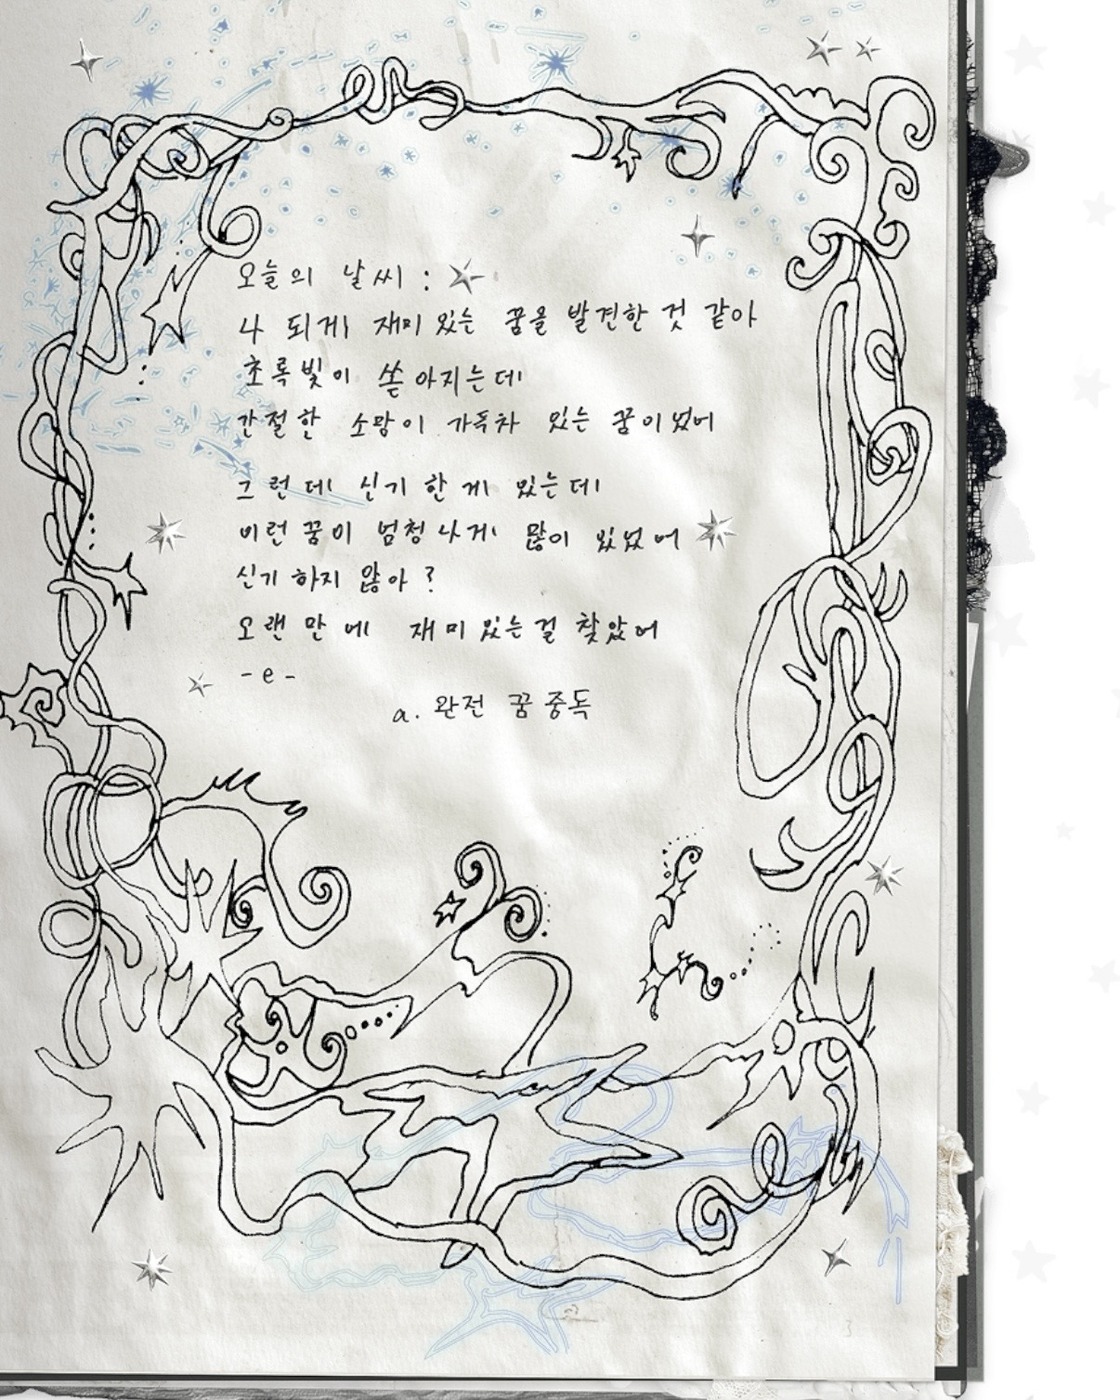 오늘의 날씨 :
나 되게 재미있는 꿈을 발견한 것 같아
초록빛이 쏟아지는데
간절한 소망이 가득차 있는 꿈이었어
그런데 신기한 게 있는데
이런 꿈이 엄청나게 많이 있었어
신기하지 않아?
오랜만에 재미있는걸 찾았어
-e-
a. 완전 꿈 중독